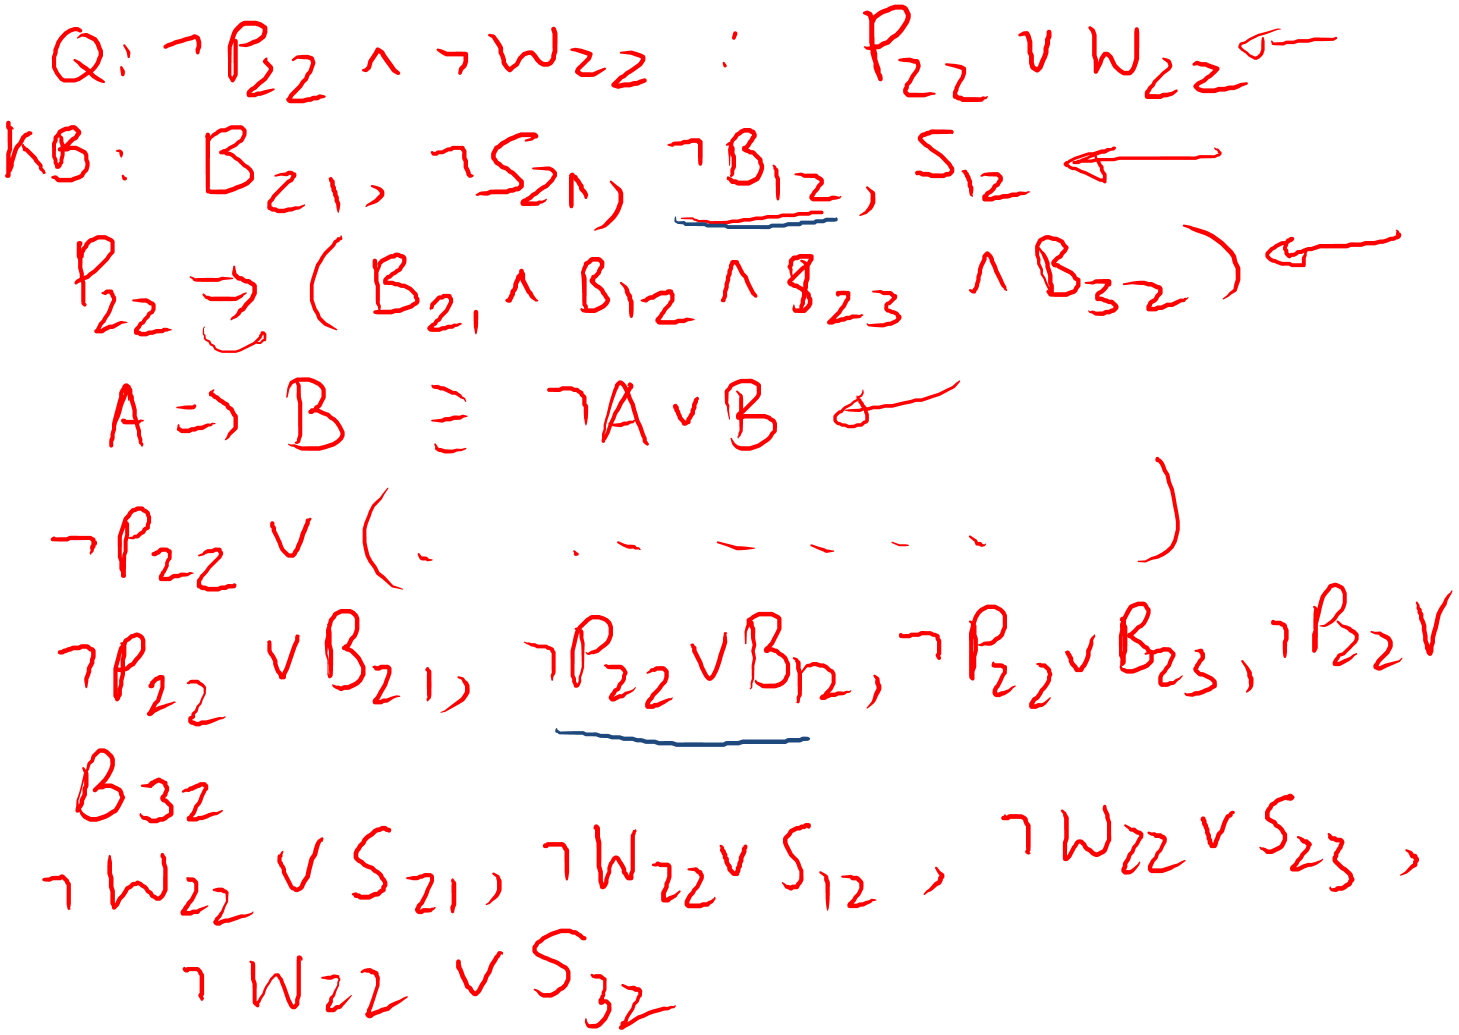 Q: ¬P₂₂ ∧ ¬W₂₂ : P₂₂ ∨ W₂₂ ←
KB: B₂₁, ¬S₂₁, ¬B₁₂, S₁₂ ←
P₂₂ ⇒ (B₂₁ ∧ B₁₂ ∧ B₂₃ ∧ B₃₂) ←
A ⇒ B ≡ ¬A ∨ B ←
¬P₂₂ ∨ (. . - - - - - )
¬P₂₂ ∨ B₂₁, ¬P₂₂ ∨ B₁₂, ¬P₂₂ ∨ B₂₃, ¬P₂₂ ∨
B₃₂
¬W₂₂ ∨ S₂₁, ¬W₂₂ ∨ S₁₂, ¬W₂₂ ∨ S₂₃,
¬W₂₂ ∨ S₃₂